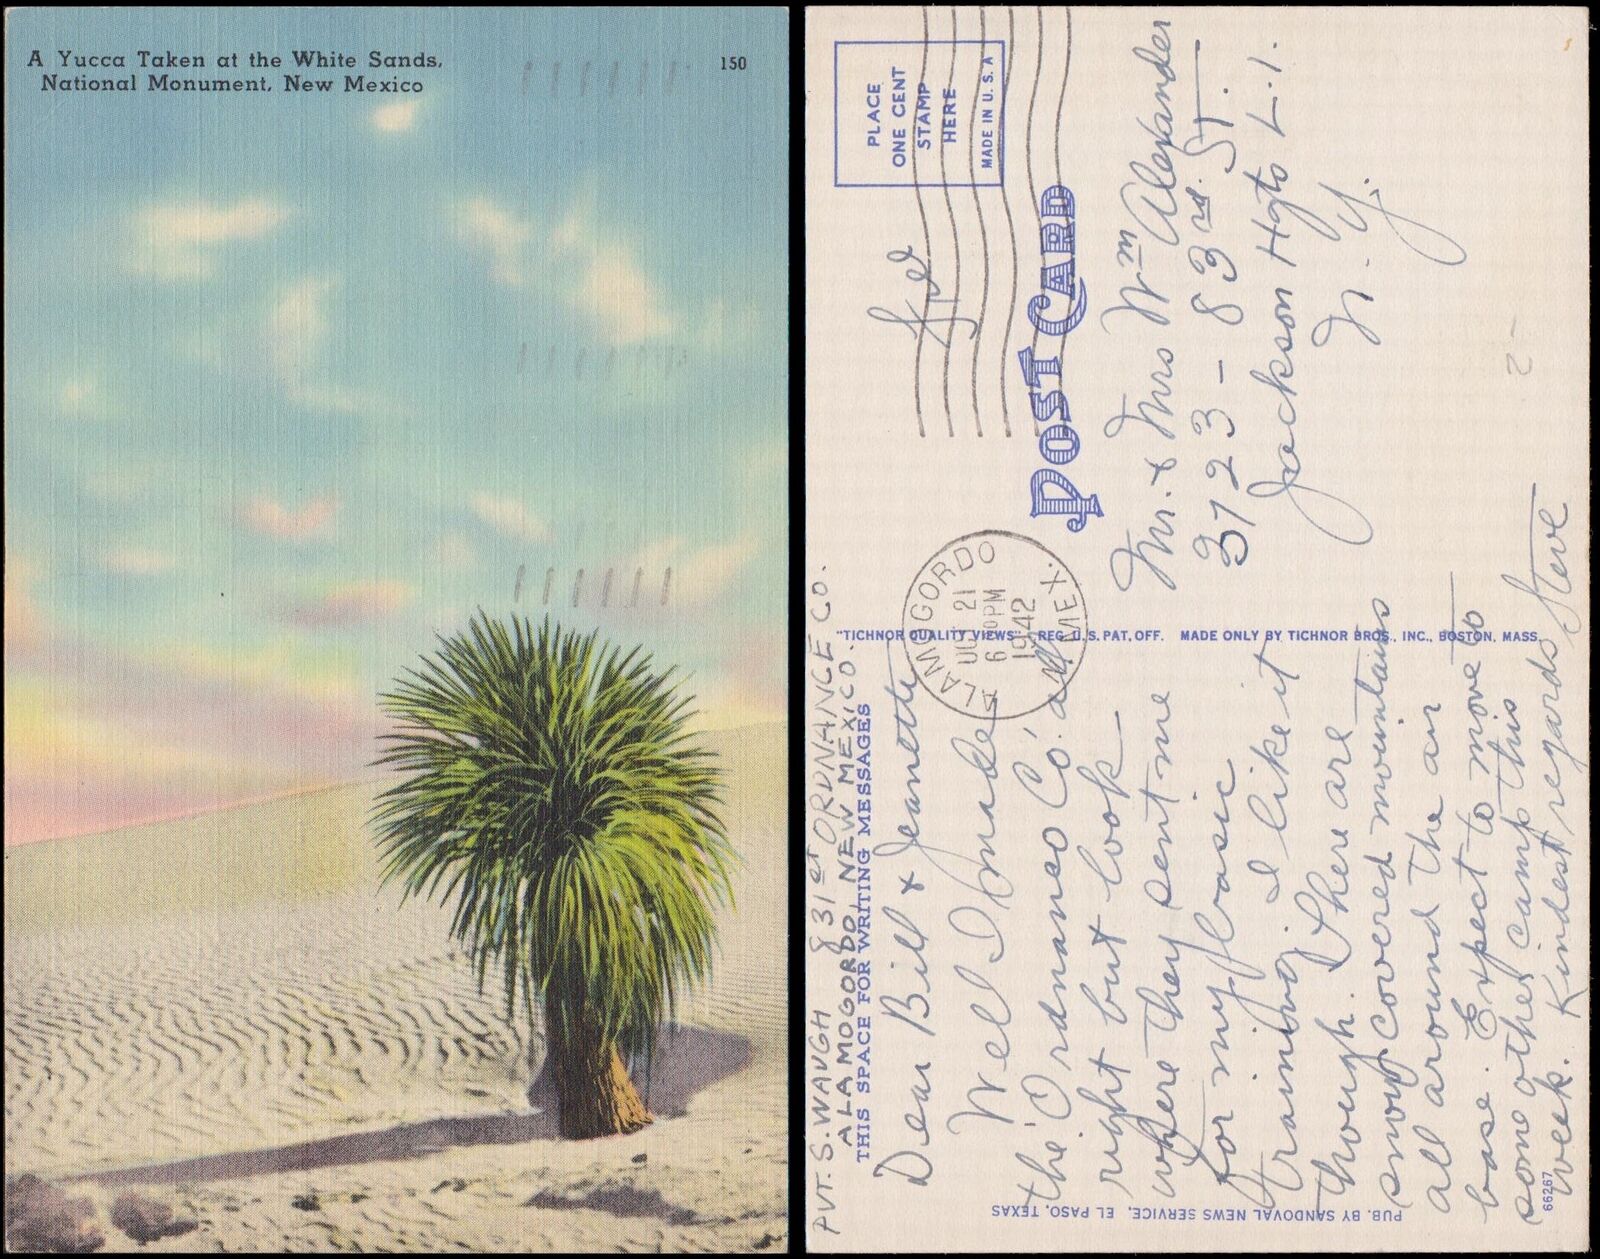 A Yucca Taken at the White Sands,
National Monument, New Mexico
150
PLACE
ONE CENT
STAMP
HERE
MADE IN U.S.A
Free
POST CARD
ALAMOGORDO
OCT 21
6 PM
1942
N. MEX.
Mr. & Mrs Wm Alexander
3723 - 83rd. ST.
Jackson Hgts L.I.
N.Y.
"TICHNOR QUALITY VIEWS" REG. U.S. PAT. OFF. MADE ONLY BY TICHNOR BROS., INC., BOSTON, MASS.
PVT. S. WAUGH 831ST ORDNANCE CO.
ALAMOGORDO, NEW MEXICO.
THIS SPACE FOR WRITING MESSAGES
Dear Bill & Jeanette
Well I make
the Ordnance Co. all
right but look
where they sent me
for my basic
training I like it
though. There are
snow covered mountains
all around the air
base. Expect to move to
some other camp this
week. Kindest regards Steve
PUB. BY SANDOVAL NEWS SERVICE, EL PASO, TEXAS
66267
2-